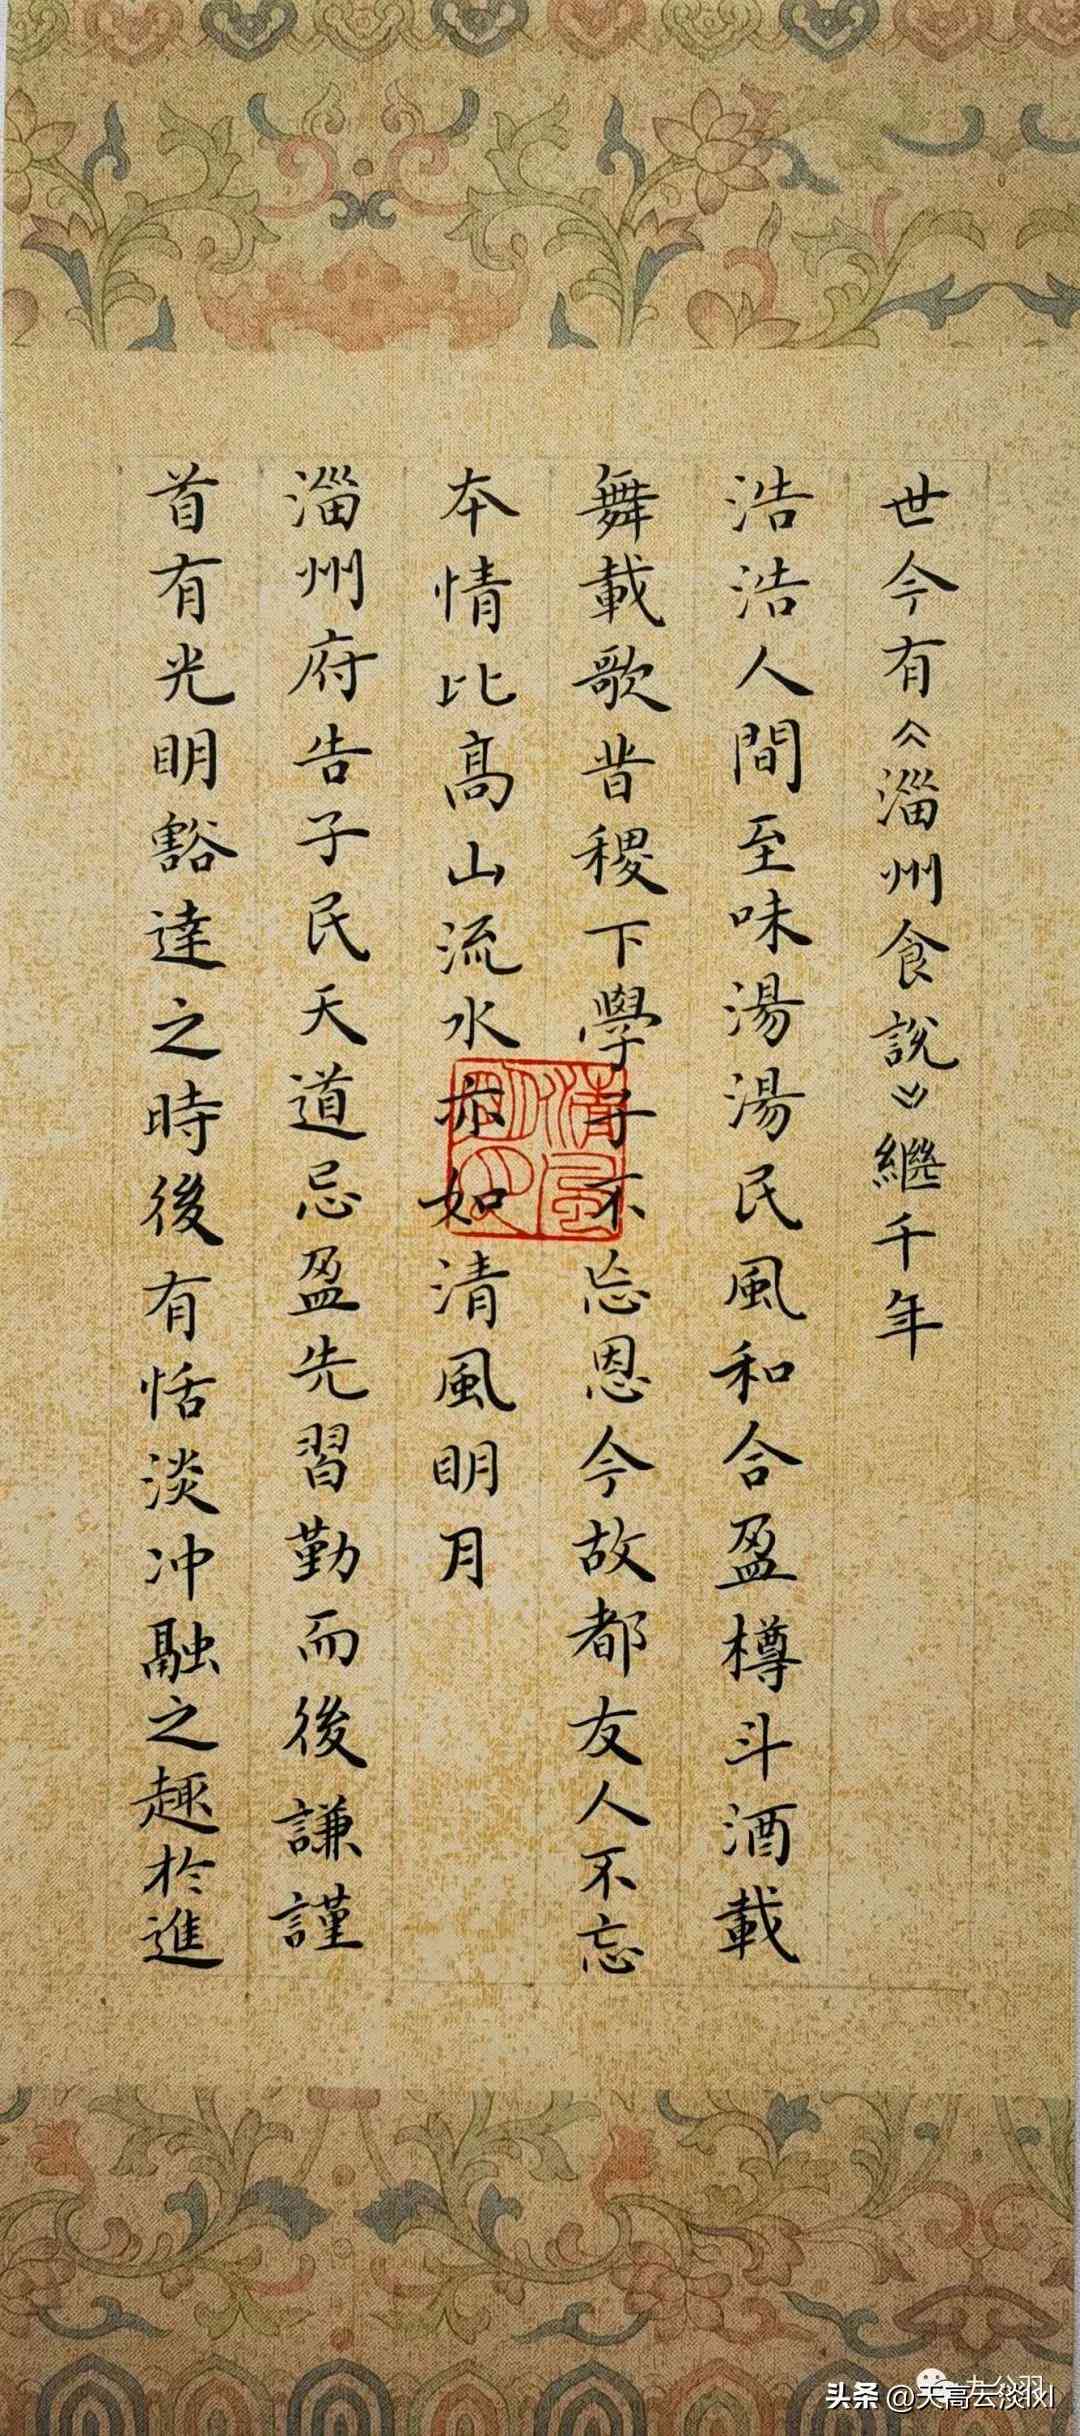 世今有《淄州食說》繼千年
浩浩人間至味湯湯民風和合盈樽斗酒載
舞載歌昔稷下學子不忘恩今故都友人不忘
本情比高山流水亦如清風明月
淄州府告子民天道忌盈先習勤而後謙謹
首有光明豁達之時後有恬淡冲融之趣於進
清風明月
头条 @天高云淡lxl